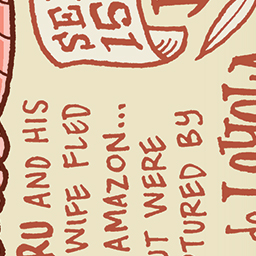 SE
15
RU AND HIS
WIFE FLED
AMAZON...
UT WERE
TURED BY
de LOYOLA